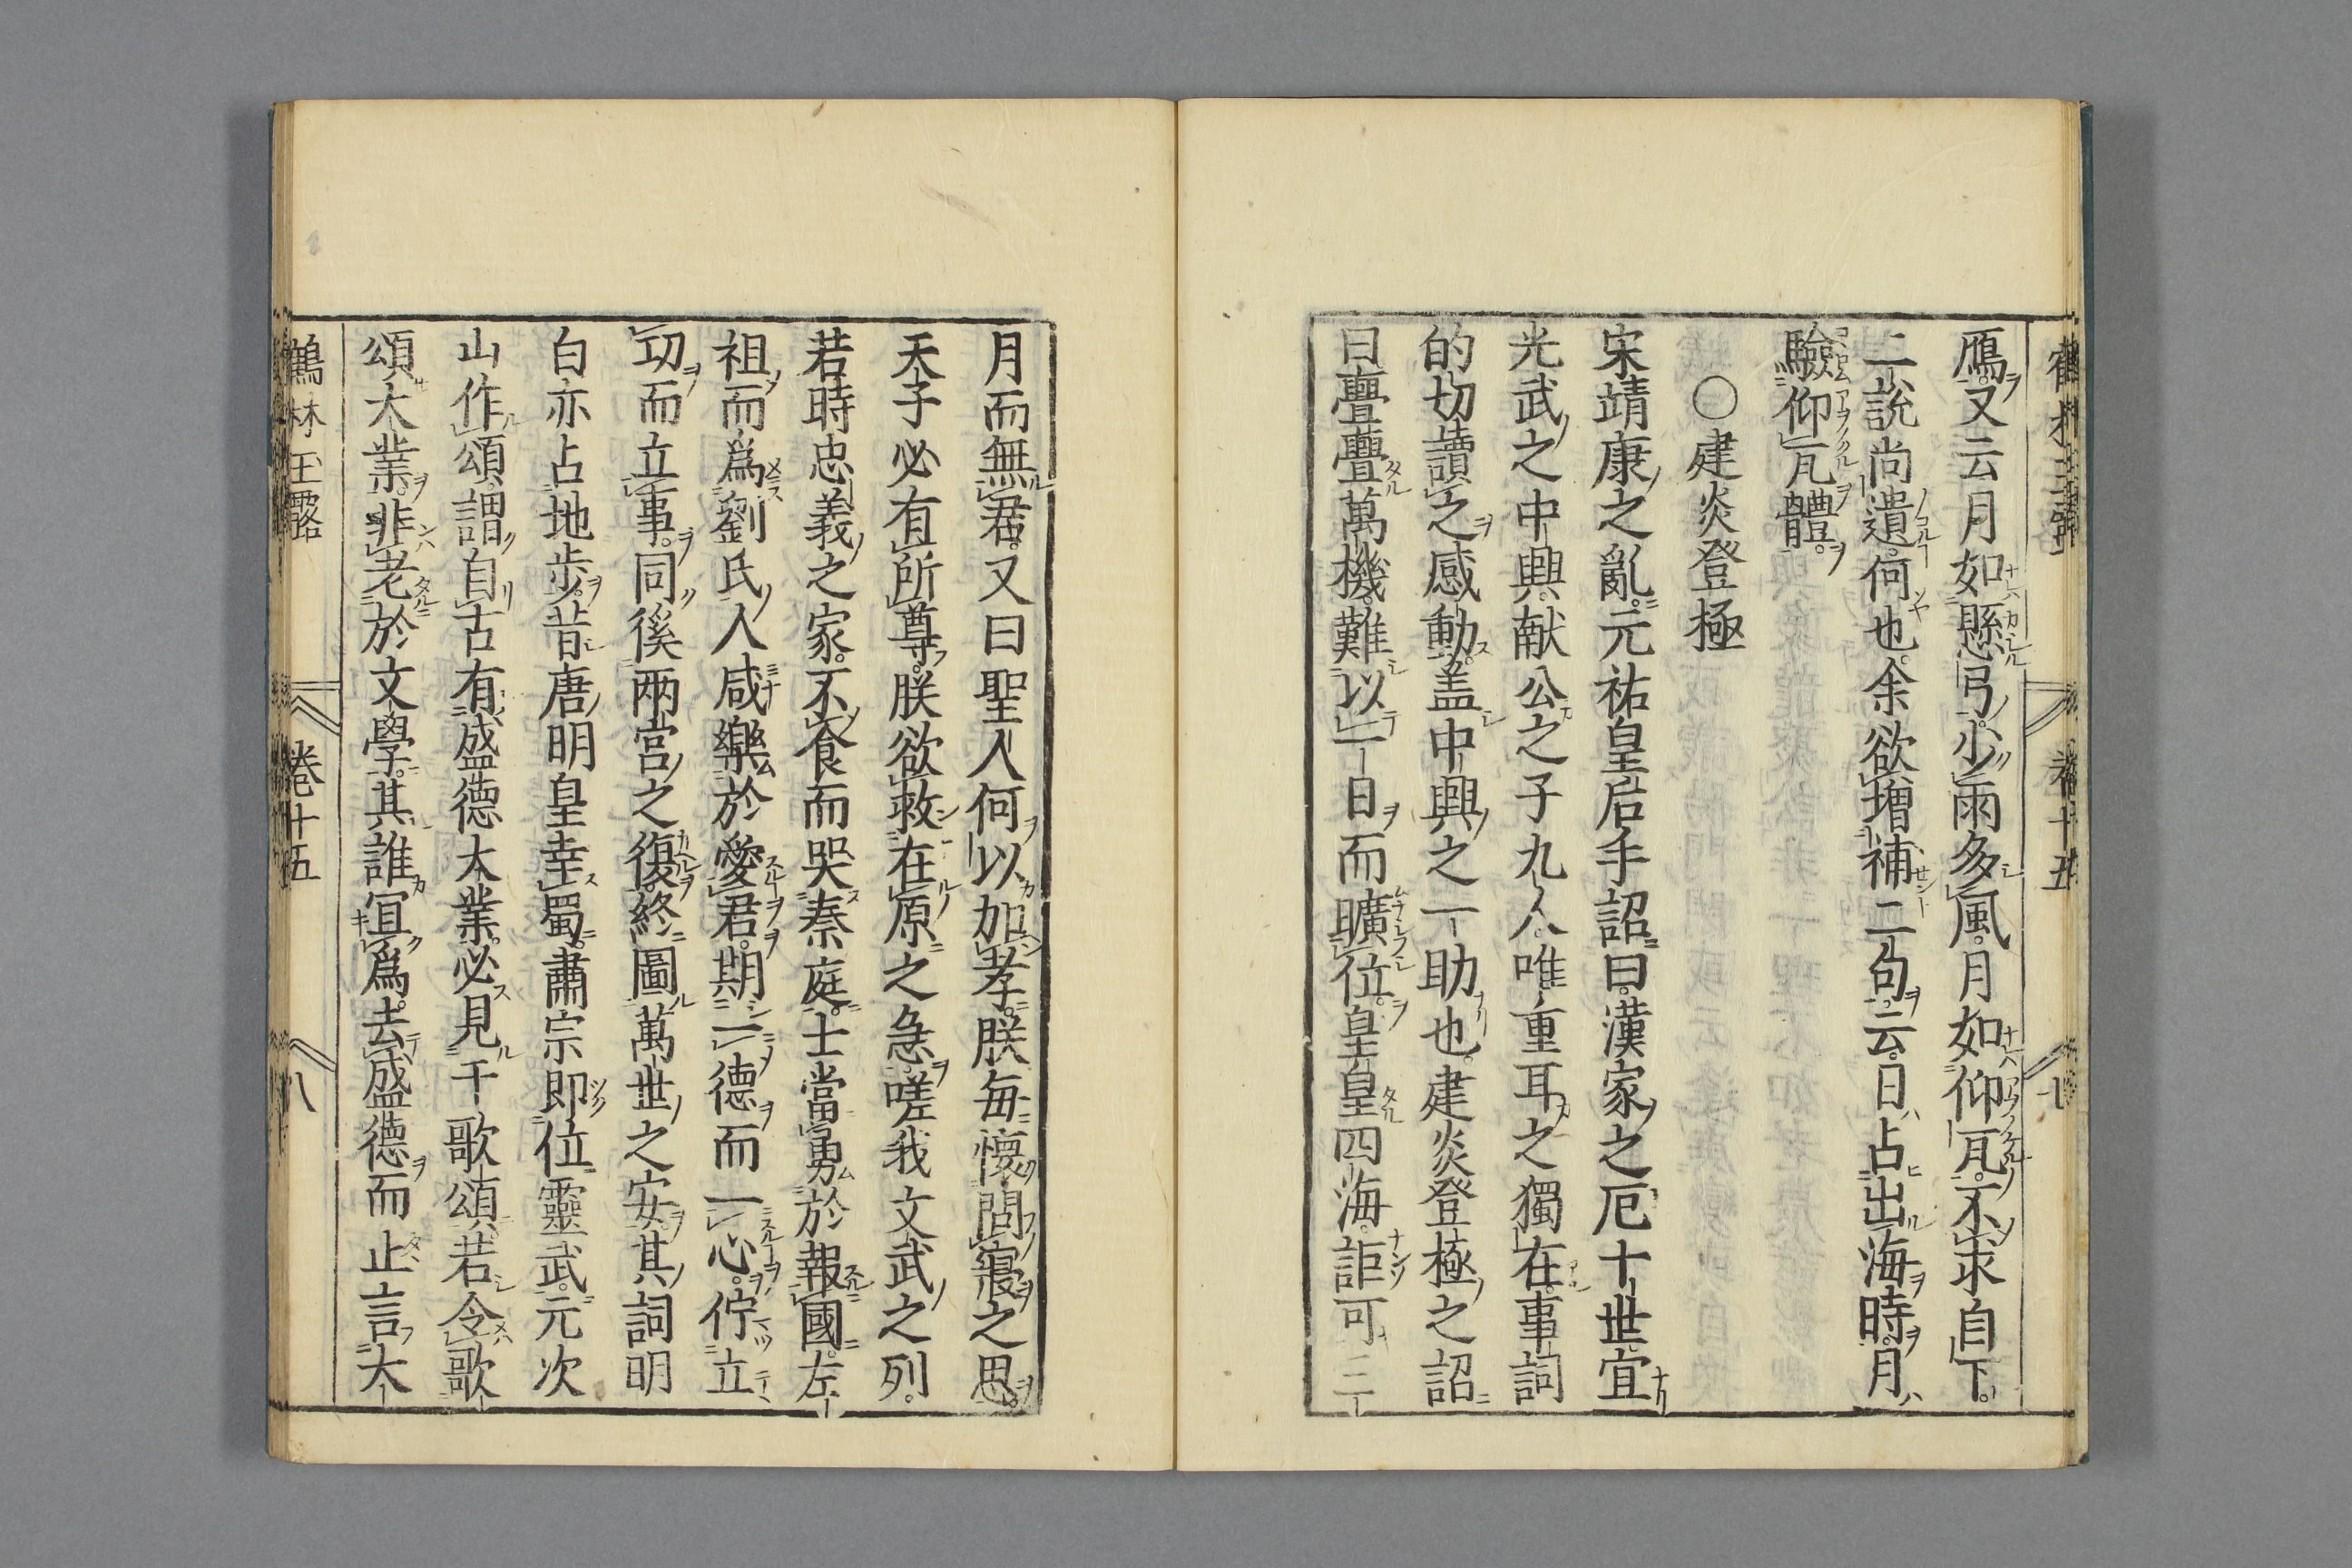 鴈又云月如懸弓少雨多風月如仰瓦不求自下
二說尚遺何也余欲增補二句云日占出海時月
驗仰瓦體
○建炎登極
宋靖康之亂元祐皇后手詔曰漢家之厄十世宜
光武之中興献公之子九人唯重耳之獨在事詞
的切讀之感動盖中興之一助也建炎登極之詔
曰亹亹萬機難以一日而曠位皇皇四海詎可三
月而無君又曰聖人何以加孝朕每懷問寢之思
天子必有所尊朕欲救在原之急嗟我文武之列
若時忠義之家不食而哭秦庭士當勇於報國左
祖而爲劉氏人咸樂於愛君期一德而一心佇立
功而立事同徯兩宮之復終圖萬世之安其詞明
白亦占地步昔唐明皇幸蜀肅宗即位靈武元次
山作頌謂自古有盛德大業必見于歌頌若令歌
頌大業非老於文學其誰宜爲去盛德而止言大
鶴林玉露 卷十五 八